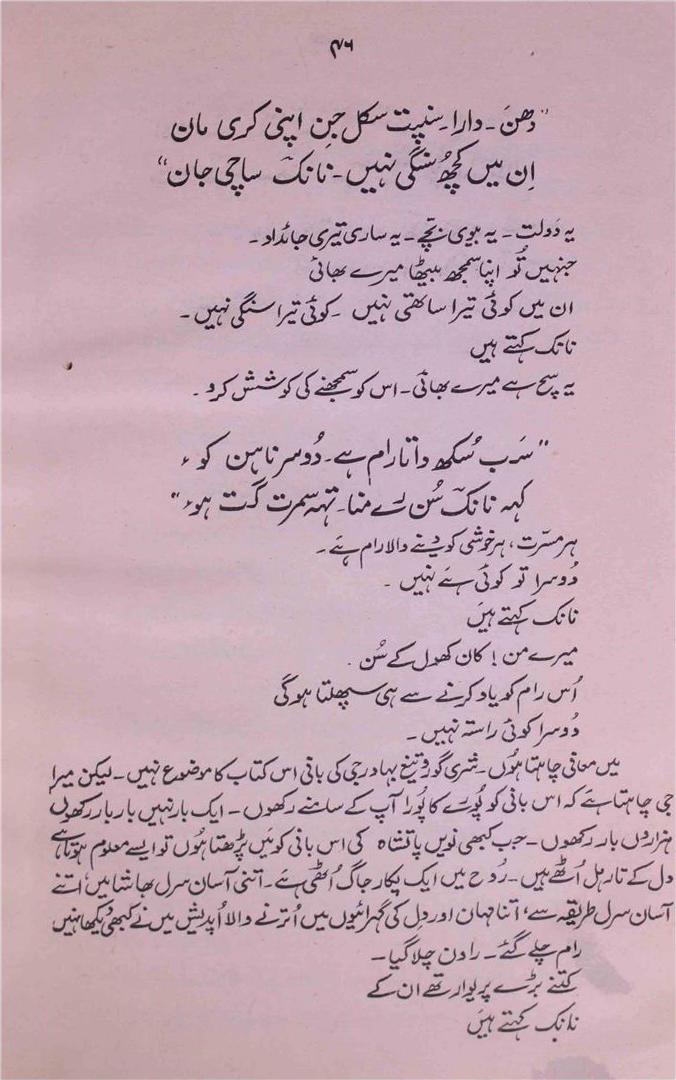 ۴۶
"دَھنَ ۔ دارا ۔ سنپت سکل جنِ اپنی کری مان
اِن میں کچھُ سنگی نہیں ۔ نانکَ ساچی جان"
یہ دَولت ۔ یہ بیوی بچّے ۔ یہ ساری تیری جائداد ۔
جنہیں تُو اپنا سمجھ بیٹھا میرے بھائی
ان میں کوئی تیرا ساتھی نہیں ۔ کوئی تیرا سنگی نہیں ۔
نانک کہتے ہیں
یہ سچ ہے میرے بھائی ۔ اس کو سمجھنے کی کوشش کرو ۔
"سَرب سُکھ داتا رام ہے ۔ دُوسر ناہن کوء
کہہ نانکَ سُن رے منا ۔ تہہ سمرت گت ہوء"
ہر مسرّت، ہر خوشی کو دینے والا رام ہَے ۔
دُوسرا تو کوئی ہَے نہیں ۔
نانک کہتے ہیںَ
میرے من ! کان کھول کے سُن ۔
اُس رام کو یاد کرنے سے ہی سپھلتا ہوگی
دُوسرا کوئی راستہ نہیں ۔
میں معافی چاہتا ہُوں ۔ شری گورو تیغ بہادر جی کی بانی اس کتاب کا موضوع نہیں ۔ لیکن میرا
جی چاہتا ہَے کہ اس بانی کو پُورے کا پُورا آپ کے سامنے رکھوں ۔ ایک بار نہیں بار بار رکھوں
ہزاروں بار رکھوں ۔ جب کبھی نویں پاتشاہ کی اس بانی کو مَیں پڑھتا ہُوں تو ایسے معلوم ہوتا ہے
دل کے تار ہل اُٹھے ہیں ۔ رُوح میں ایک پکار جاگ اُٹھی ہَے ۔ اتنی آسان سرل بھاشا میں، اتنے
آسان سرل طریقہ سے، اتنا مہان اور دِل کی گہرائیوں میں اُترنے والا اُپدیش میں نے کبھی دُیکھا نہیں
رام چلے گئے ۔ راون چلا گیا ۔
کتنے بڑے پریوار تھے ان کے
نانک کہتے ہیںَ